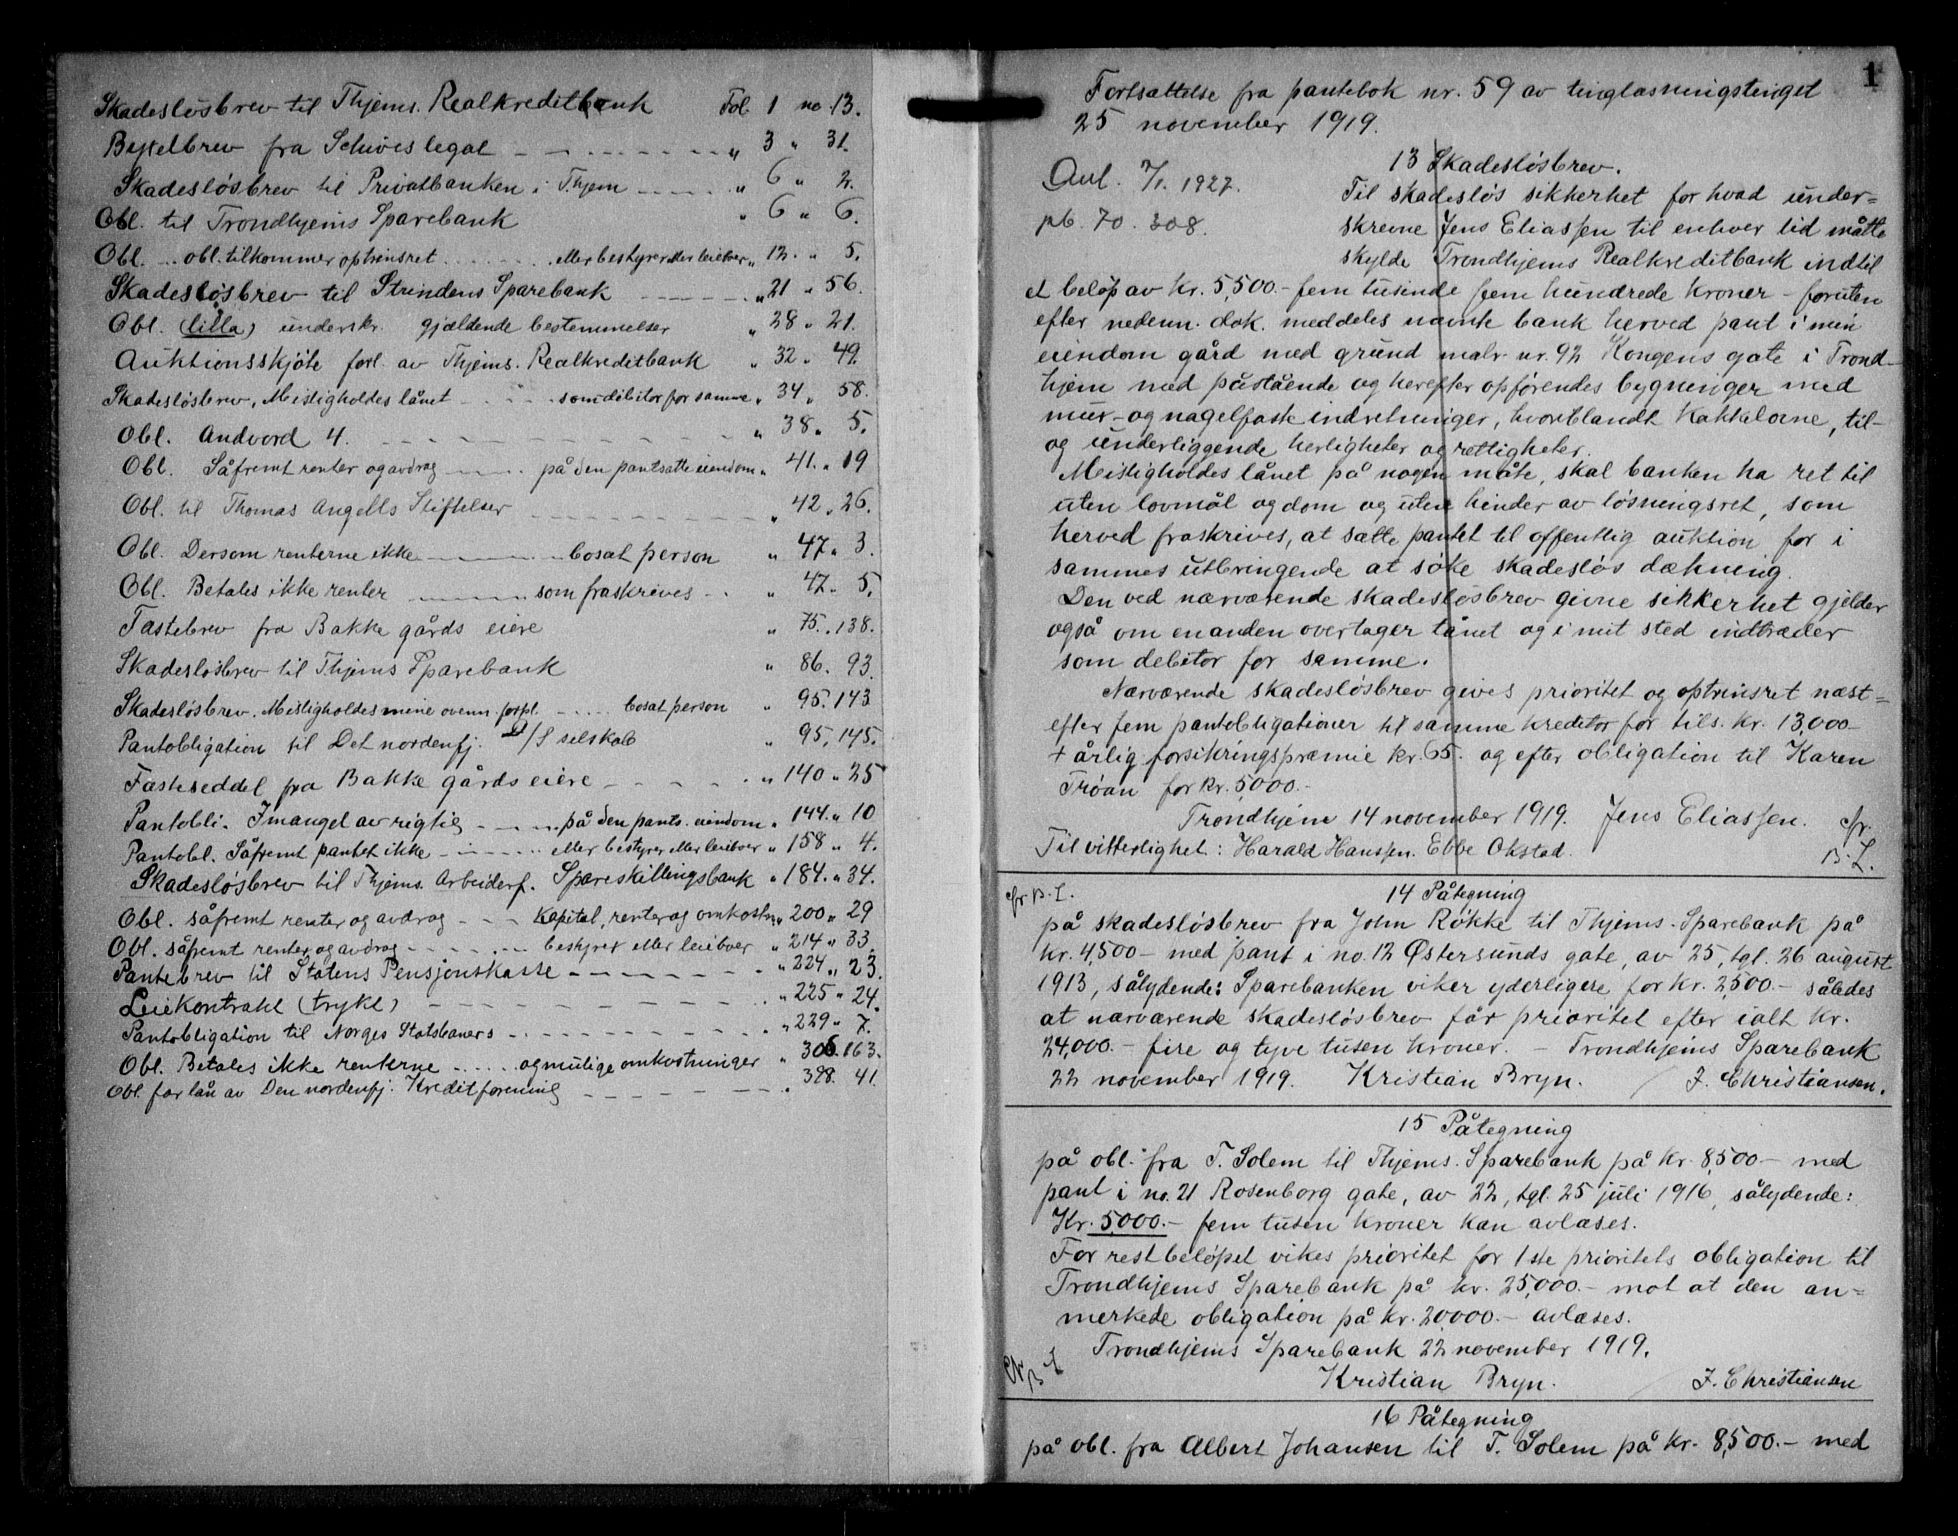 Skadesløsbrev til Thjems. Realkreditbank Fol. 1 no. 13.
Bykelbrev fra Schives legat - - - - - - „ 3 „ 31.
Skadesløsbrev til Privatbanken i Thjem - - - - „ 6 „ 2.
Obl. til Trondhjems Sparebank „ 6 „ 6.
Obl. ... obl. tilkommer optrinsret - - - - - eller bestyrer eller leieboer „ 12. „ 5.
Skadesløsbrev til Strindens Sparebank - - - - „ 21 „ 56.
Obl. (lilla) underskr. gjældende bestemmelser „ 28 „ 21.
Auktionsskjøte forl. av Thjems. Realkreditbank „ 32 „ 49.
Skadesløsbrev, Misligholdes lånet - - - - som debitor for samme „ 34 „ 58.
Obl. Andvord 4. - - - - - - - - „ 38 „ 5.
Obl. Såfremt renter og avdrag - - - - på den pantsatte eiendom „ 41. „ 19
Obl. til Thomas Angells Stiftelser - - - - - „ 42 „ 26.
Obl. Dersom renterne ikke - - - - bosat person „ 47 „ 3.
Obl. Betales ikke renter - - - - som fraskrives - - „ 47. „ 5.
Fæstebrev fra Bakke gårds eiere „ 75. „ 138.
Skadesløsbrev til Thjems Sparebank „ 86. 93.
Skadesløsbrev. Misligholdes mine ovenn. forpl. - - - - bosat person „ 95. 143
Pantobligation til Det nordenfj. D/S selskab „ 95, 145.
Fæsteseddel fra Bakke gårds eiere - - - - „ 140 „ 25
Pantobli. I mangel av rigtig - - - - på den pants. eiendom „ 144. „ 10
Pantobl. Såfremt pantet ikke - - - - eller bestyrer eller leieboer „ 158 „ 4.
Skadesløsbrev til Thjems. Arbeiderf. Spareskillingsbank „ 184. „ 34.
Obl. såfremt renter og avdrag - - - Kapital, renter og omkostn. „ 200 „ 29
Obl. såfremt renter og avdrag - - - - bestyrer eller leieboer „ 214 „ 33.
Pantebrev til Statens Pensjonskasse - - - - - „ 224 „ 23.
Leiekontrakt (trykt) - - - - - - - „ 225 „ 24.
Pantobligation til Norges Statsbaners - - - - - „ 229 „ 7.
Obl. Betales ikke renterne - - - - og mulige omkostninger „ 306. 163.
Obl. for lån av Den nordenfj. Kreditforening - - - - - „ 398. 41.
1
Fortsættelse fra pantebok nr. 59 av tinglæsningstinget
25 november 1919.
13 Skadesløsbrev.
Avl. 7/1. 1927.
pb. 70. 308.
Til skadesløs sikkerhet for hvad under=
skrevne Jens Eliassen til enhver tid måtte
skylde Trondhjems Realkreditbank indtil
et beløp av kr. 5,500.- fem tusinde fem hundrede kroner - foruten
efter nedenn. dok. meddeles nævnte bank herved pant i min
eiendom gård med grund matr. nr. 92 Kongens gate i Trond-
hjem med påstående og herefter opførendes bygninger med
mur- og nagelfaste indretninger, hvoriblandt Kakkelovne, til-
og underliggende herligheter og rettigheter.
Misligholdes lånet på nogen måte, skal banken ha ret til
uten lovmål og dom og uten hinder av løsningsret, som
herved fraskrives, at sætte pantet til offentlig auktion for i
sammes utbringende at søke skadesløs dækning.
Den ved nærværende skadesløsbrev givne sikkerhet gjelder
også om en anden overtager lånet og i mit sted indtræder
som debitor for samme.
Nærværende skadesløsbrev gives prioritet og optrinsret næst=
efter fem pantobligationer til samme kreditor for tils. kr. 13,000-
+ årlig forsikringspræmie kr. 65. og efter obligation til Karen
Trøan for kr. 5,000.-
Trondhjem 14 november 1919. Jens Eliassen. cfr.
Til vitterlighet: Harald Hanssen. Ebbe Okstad. B.L.
cfr B.L. 14 Påtegning
på skadesløsbrev fra John Røkke til Thjems. Sparebank på
kr. 4,500 - med pant i no. 12 Østersunds gate, av 25, tgl. 26 august
1913, sålydende: Sparebanken viker yderligere for kr. 2,500.- således
at nærværende skadesløsbrev får prioritet efter ialt kr.
24,000.- fire og tyve tusen kroner. - Trondhjems Sparebank
22 november 1919. Kristian Bryn. / J. Christiansen.
15 Påtegning
på obl. fra T. Solem til Thjems. Sparebank på kr. 8,500.- med
pant i no. 21 Rosenborg gate, av 22, tgl. 25 juli 1916, sålydende:
Kr. 5,000.- fem tusen kroner kan avlæses.
For restbeløpet vikes prioritet for 1ste prioritets obligation til
Trondhjems Sparebank på kr. 25,000.- mot at den an=
merkede obligation på kr. 20,000.- avlæses.
Trondhjems Sparebank 22 november 1919.
Cfr B L Kristian Bryn. / J. Christiansen
16 Påtegning
på obl. fra Albert Johansen til T. Solem på kr. 8,500.- med